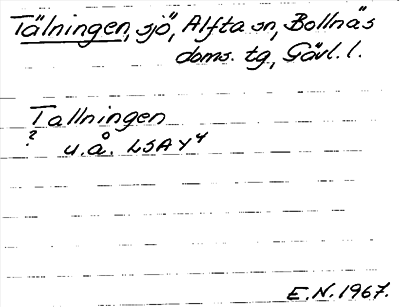 Tälningen, sjö, Alfta sn, Bollnäs
doms. tg, Gävl. l.
Tallningen
? u.å. LSA Y4
E.N. 1967.